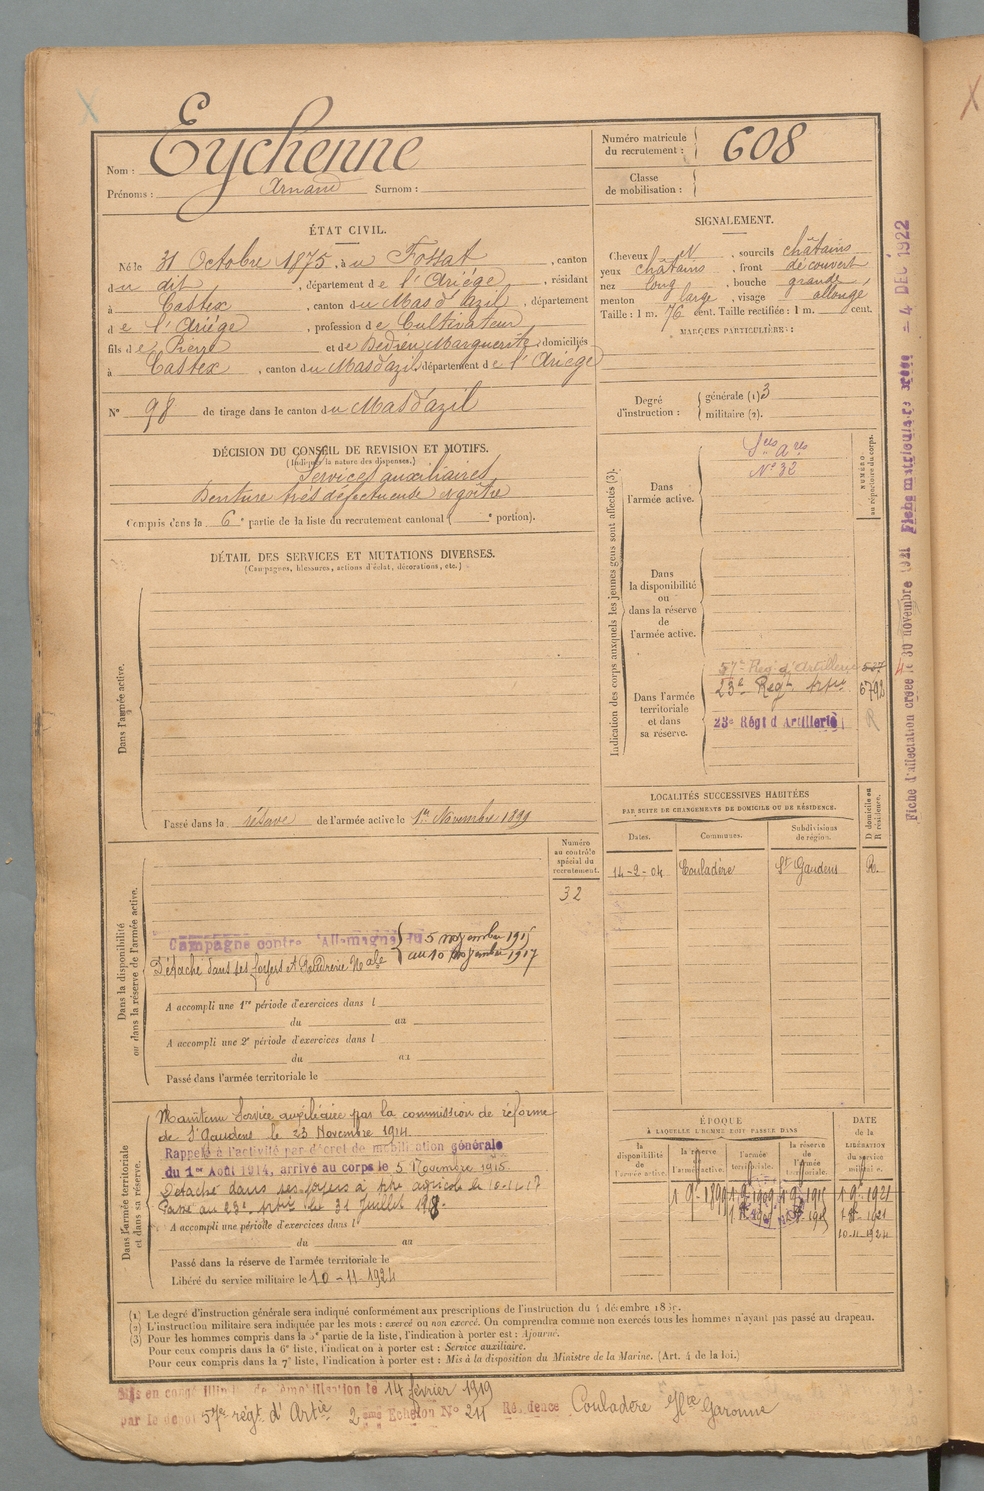 Eychenne
Nom :
Prénoms : Arnaud Surnom :
Numéro matricule du recrutement : 608
Classe de mobilisation :
ÉTAT CIVIL.
Né le 31 Octobre 1875, à u Fossat, canton
du dit, département de l'Ariége, résidant
à Castex, canton du Mas d'azil, département
de l'Ariége, profession de Cultivateur
fils de Pierre et de Dedieu Marguerite, domiciliés
à Castex, canton du Masdazil, département de l'Ariége
N° 98 de tirage dans le canton du Mas d'azil
SIGNALEMENT.
Cheveux N, sourcils châtains
yeux châtains, front découvert
nez long, bouche grande
menton large, visage allongé
Taille : 1 m. 76 cent. Taille rectifiée : 1 m. cent.
MARQUES PARTICULIÈRES :
Degré d'instruction : générale (1) 3
militaire (2).
DÉCISION DU CONSEIL DE REVISION ET MOTIFS.
(Indiquer la nature des dispenses.)
Services auxiliaires
Denture très défectueuse goitre
Compris dans la 6e partie de la liste du recrutement cantonal ( e portion).
DÉTAIL DES SERVICES ET MUTATIONS DIVERSES.
(Campagnes, blessures, actions d'éclat, décorations, etc.)
Dans l'armée active.
Passé dans la réserve de l'armée active le 1er Novembre 1899
Indication des corps auxquels les jeunes gens sont affectés (3).
NUMÉRO au répertoire du corps.
Dans l'armée active.
Sces Ares
N° 32
Dans la disponibilité ou dans la réserve de l'armée active.
Dans l'armée territoriale et dans sa réserve.
57e Reg. d'Artillerie 527
23e Regt Artie 6798
23e Régt d'Artillerie R
LOCALITÉS SUCCESSIVES HABITÉES
PAR SUITE DE CHANGEMENTS DE DOMICILE OU DE RÉSIDENCE.
Dates. Communes. Subdivisions de région. D domicile ou R résidence.
14-2-04 Couladère St Gaudens R.
Numéro au contrôle spécial du recrutement.
32
Dans la disponibilité ou dans la réserve de l'armée active.
Campagne contre l'Allemagne du 5 novembre 1915
au 10 novembre 1917
Détaché dans ses foyers et Poudrerie Nale
A accompli une 1re période d'exercices dans l
du au
A accompli une 2e période d'exercices dans l
du au
Passé dans l'armée territoriale le
Dans l'armée territoriale et dans sa réserve.
Maintenu Service auxiliaire par la commission de réforme
de St Gaudens le 23 Novembre 1914
Rappelé à l'activité par décret de mobilisation générale
du 1er Août 1914, arrivé au corps le 5 Novembre 1915
Détaché dans ses foyers à titre agricole le
Passé au 23e Artie le 31 Juillet 1918.
A accompli une période d'exercices dans l
du au
Passé dans la réserve de l'armée territoriale le
Libéré du service militaire le 10-11-1924
ÉPOQUE
À LAQUELLE L'HOMME DOIT PASSER DANS
la disponibilité de l'armée active. la réserve de l'armée active. l'armée territoriale. la réserve de l'armée territoriale. DATE de la LIBÉRATION du service militaire.
1 9e 1899 1 9e 1909 1 9e 1915 1 9e 1921
10-11-1924
(1) Le degré d'instruction générale sera indiqué conformément aux prescriptions de l'instruction du 4 décembre 1889.
(2) L'instruction militaire sera indiquée par les mots : exercé ou non exercé. On comprendra comme non exercés tous les hommes n'ayant pas passé au drapeau.
(3) Pour les hommes compris dans la 5e partie de la liste, l'indication à porter est : Ajourné.
Pour ceux compris dans la 6e liste, l'indication à porter est : Service auxiliaire.
Pour ceux compris dans la 7e liste, l'indication à porter est : Mis à la disposition du Ministre de la Marine. (Art. 4 de la loi.)
Mis en congé illimité de démobilisation le 14 février 1919
par le dépôt 57e régt d'Artie 2ème Echelon N° 211 Résidence Couladère Hte Garonne
Fiche d'affectation créée le 30 novembre 1921 Fiche matriculaire créée = 4 DEC 1922